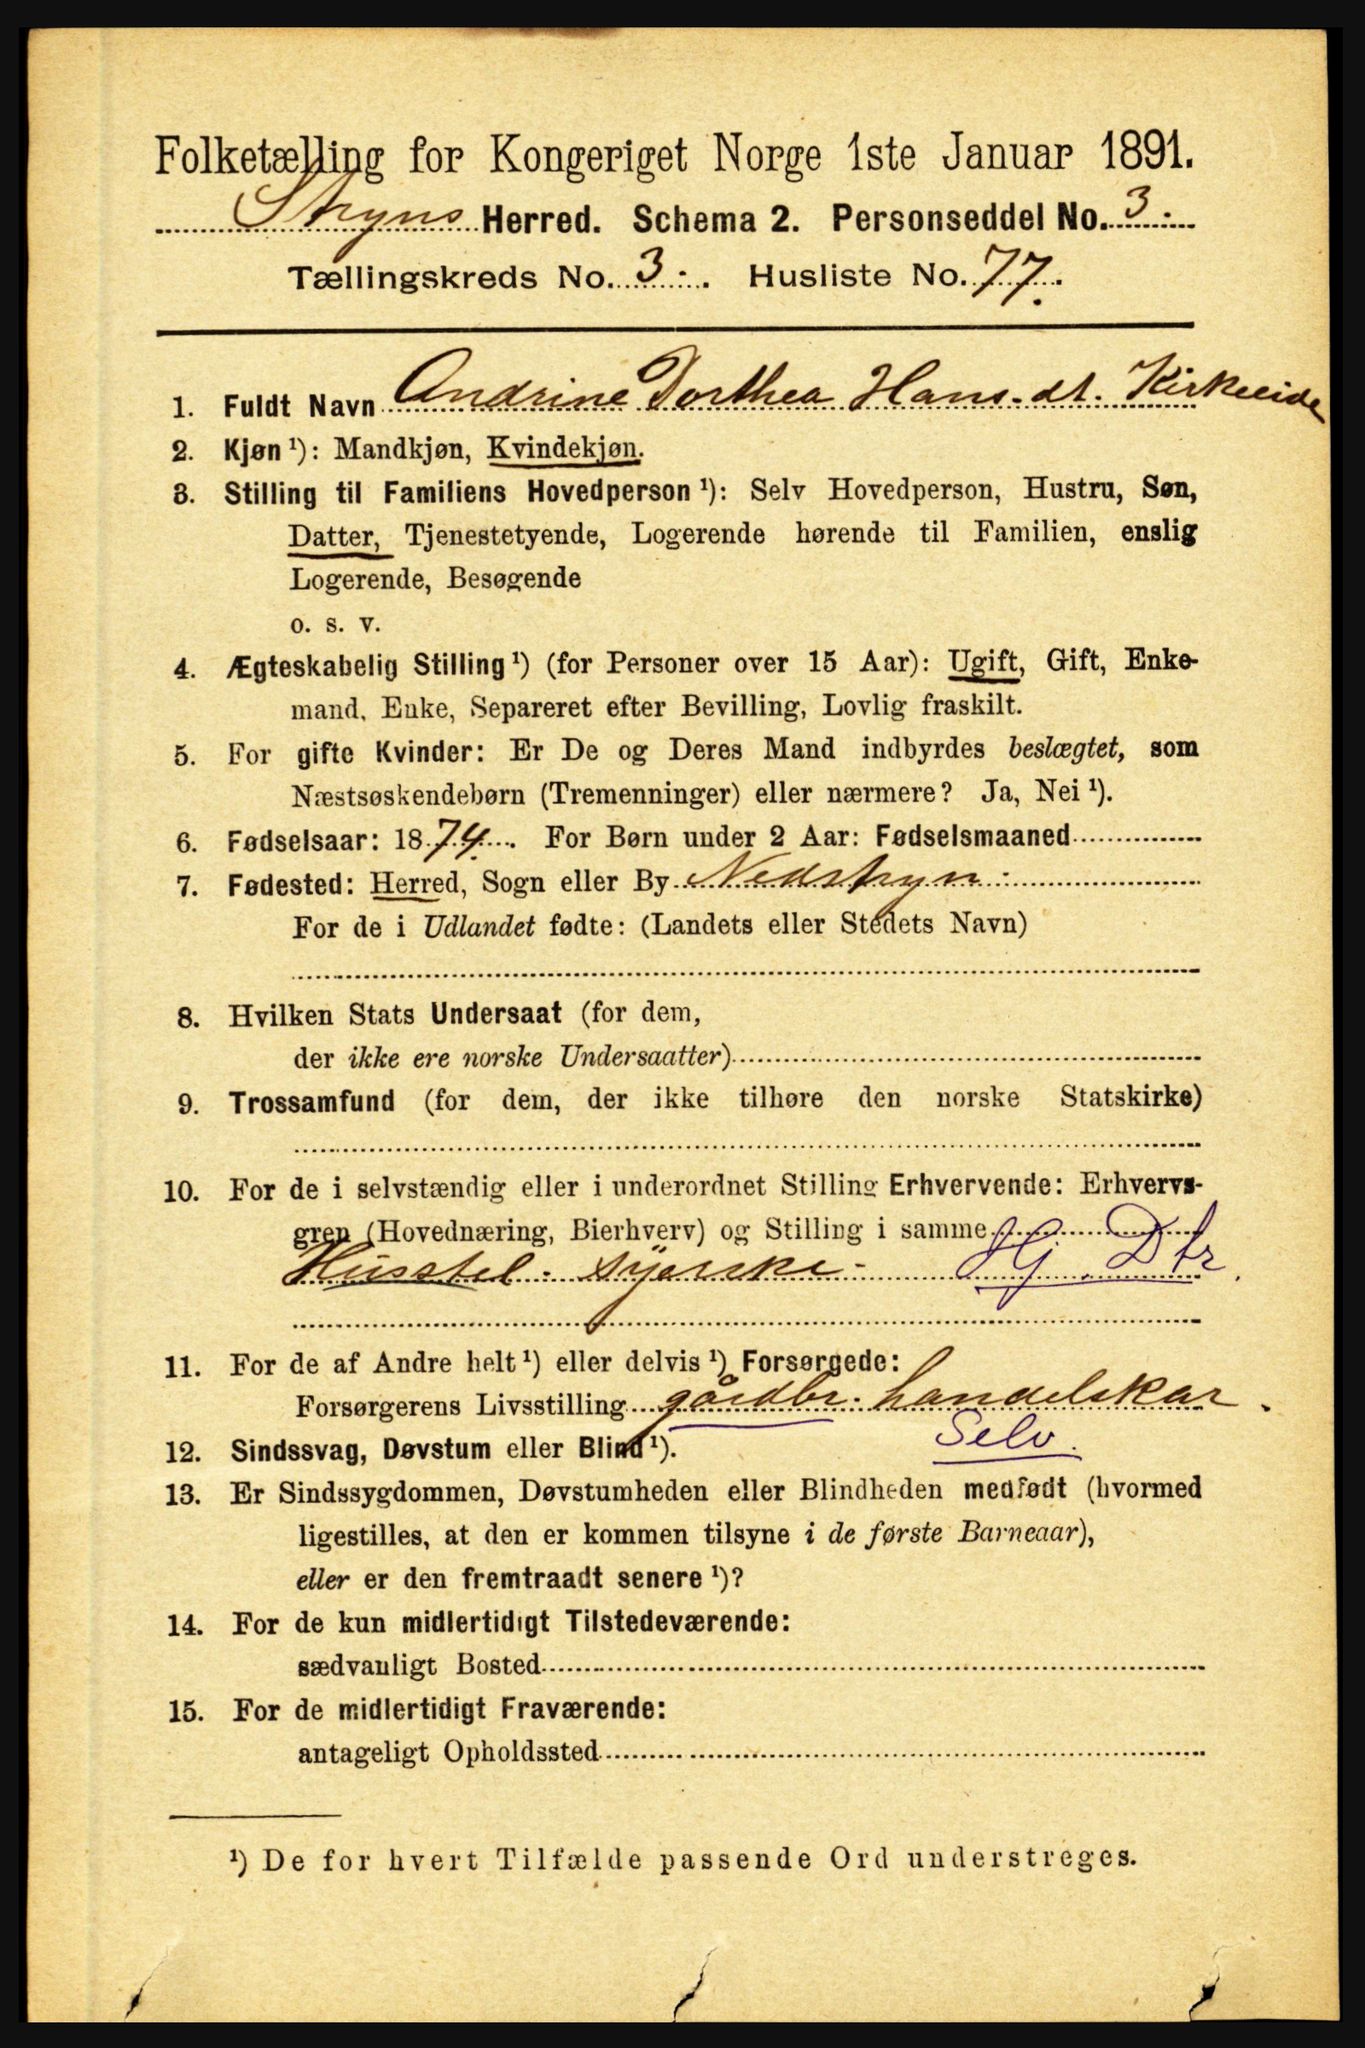 Folketælling for Kongeriget Norge 1ste Januar 1891.
Stryns Herred. Schema 2. Personseddel No. 3.
Tællingskreds No. 3. Husliste No. 77.
1. Fuldt Navn Andrine Dorthea Hans.dt. Kirkeeide
2. Kjøn ¹): Mandkjøn, Kvindekjøn.
3. Stilling til Familiens Hovedperson ¹): Selv Hovedperson, Hustru, Søn,
Datter, Tjenestetyende, Logerende hørende til Familien, enslig
Logerende, Besøgende
o. s. v.
4. Ægteskabelig Stilling ¹) (for Personer over 15 Aar): Ugift, Gift, Enke-
mand, Enke, Separeret efter Bevilling, Lovlig fraskilt.
5. For gifte Kvinder: Er De og Deres Mand indbyrdes beslægtet, som
Næstsøskendebørn (Tremenninger) eller nærmere? Ja, Nei ¹).
6. Fødselsaar: 1874. For Børn under 2 Aar: Fødselsmaaned
7. Fødested: Herred, Sogn eller By Nedstryn
For de i Udlandet fødte: (Landets eller Stedets Navn)
8. Hvilken Stats Undersaat (for dem,
der ikke ere norske Undersaatter)
9. Trossamfund (for dem, der ikke tilhøre den norske Statskirke)
10. For de i selvstændig eller i underordnet Stilling Erhvervende: Erhvervs-
gren (Hovednæring, Bierhverv) og Stilling i samme
Husstel. syerske. Hj. Dtr.
11. For de af Andre helt ¹) eller delvis ¹) Forsørgede:
Forsørgerens Livsstilling gårdbr. handelskar.
12. Sindssvag, Døvstum eller Blind ¹). Selv.
13. Er Sindssygdommen, Døvstumheden eller Blindheden medfødt (hvormed
ligestilles, at den er kommen tilsyne i de første Barneaar),
eller er den fremtraadt senere ¹)?
14. For de kun midlertidigt Tilstedeværende:
sædvanligt Bosted
15. For de midlertidigt Fraværende:
antageligt Opholdssted
¹) De for hvert Tilfælde passende Ord understreges.